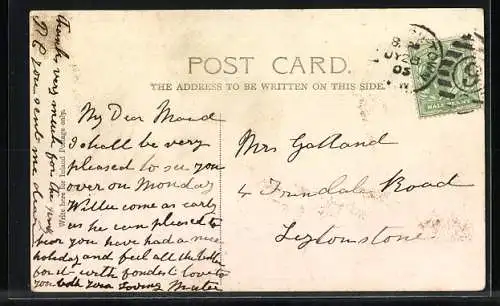 POST CARD.
THE ADDRESS TO BE WRITTEN ON THIS SIDE.
Thanks very much for the nice
P.C you sent me dear
Write here for Inland Postage only.
My Dear Maud
I shall be very
pleased to see you
over on Monday
Willie come as early
as he can pleased to
hear you have had a nice
holiday and feel all the better
for it with fondest love to
you both your loving
Mrs Galland
4 Road
Leytonstone
HALF